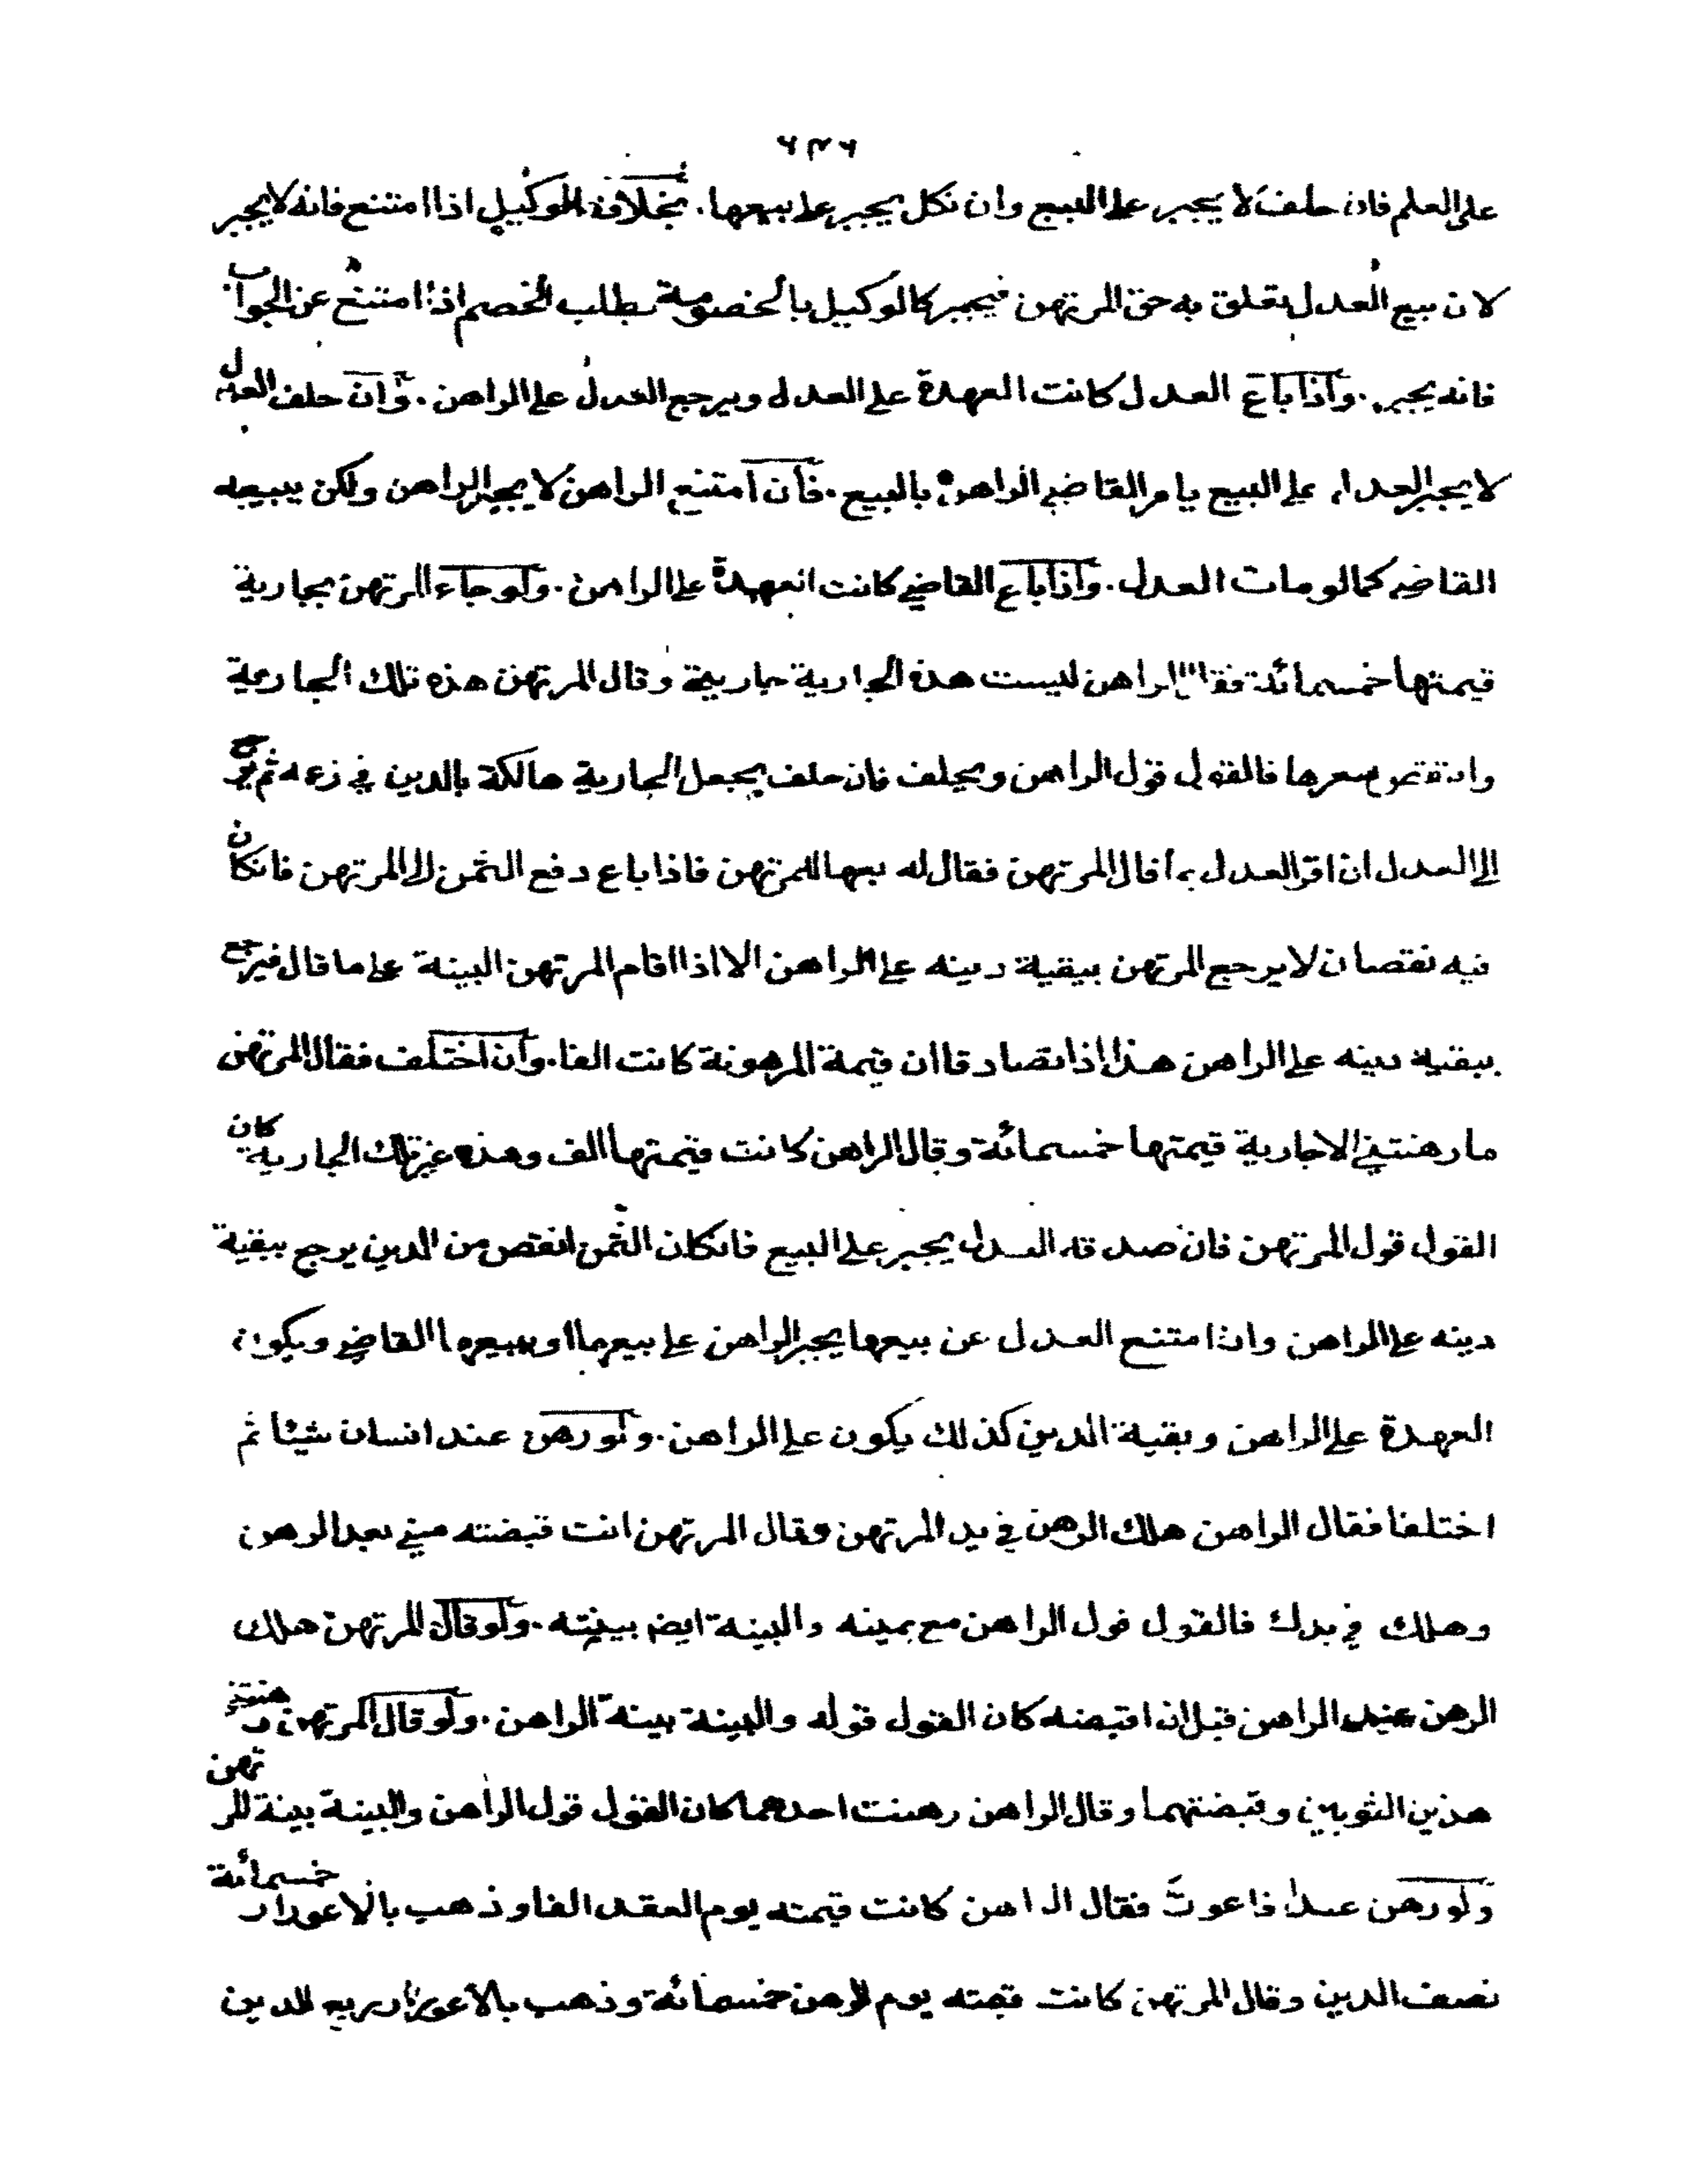 ٦٣٦
على العلم فان حلف لا يجبر على البيع وان نكل يجبر على بيعها. بخلاف الموكيل اذا امتنع فانه لا يجبر
لان بيع العدل تعلق به حق المرتهن فيجبر كالوكيل بالخصومة بطلب الخصم اذا امتنع عن الجواب
فانه يجبر. واذا باع العدل كانت العهدة على العدل ويرجع العدل على الراهن. وان حلف العدل
لا يجبر العدل على البيع يامر القاضي الراهن بالبيع. فان امتنع الراهن لا يجبر الراهن ولكن يبيعه
القاضي كما لو مات العدل. واذا باع القاضي كانت العهدة على الراهن. ولو جاء المرتهن بجارية
قيمتها خمسمائة فقال الراهن ليست هذه الجارية جاريتي وقال المرتهن هذه تلك الجارية
وانتقص سعرها فالقول قول الراهن ويحلف فان حلف يجعل الجارية هالكة بالدين في زعمه ثم يرجع
الى العدل ان اقر العدل بما قال المرتهن فقال له بعها للمرتهن فاذا باع دفع الثمن الى المرتهن فان كان
فيه نقصان لا يرجع المرتهن ببقية دينه على الراهن الا اذا اقام المرتهن البينة على ما قال فيرجع
ببقية دينه على الراهن هذا اذا تصادقا ان قيمة المرهونة كانت الفا. وان اختلف فقال المرتهن
ما رهنتني الا جارية قيمتها خمسمائة وقال الراهن كانت قيمتها الف وهذه غير تلك الجارية كان
القول قول المرتهن فان صدقه العدل يجبر على البيع فان كان الثمن انقص من الدين يرجع ببقية
دينه على الراهن واذا امتنع العدل عن بيعها يجبر الراهن على بيعها او يبيعها القاضي ويكون
العهدة على الراهن وبقية الدين كذلك يكون على الراهن. ولو رهن عند انسان شيئا ثم
اختلفا فقال الراهن هلك الرهن في يد المرتهن وقال المرتهن انت قبضته مني بعد الرهن
وهلك في يدك فالقول قول الراهن مع يمينه والبينة ايضا بينته. ولو قال المرتهن هلك
الرهن عند الراهن قبل ان اقبضه كان القول قوله والبينة بينة الراهن. ولو قال المرتهن رهنتني
هذين الثوبين وقبضتهما وقال الراهن رهنت احدهما كان القول قول الراهن والبينة بينة للمرتهن
ولو رهن عبدا فاعور فقال الراهن كانت قيمته يوم العقد الفا وذهب بالاعورار خمسمائة
نصف الدين وقال المرتهن كانت قيمته يوم الرهن خمسمائة وذهب بالاعورار ربع الدين